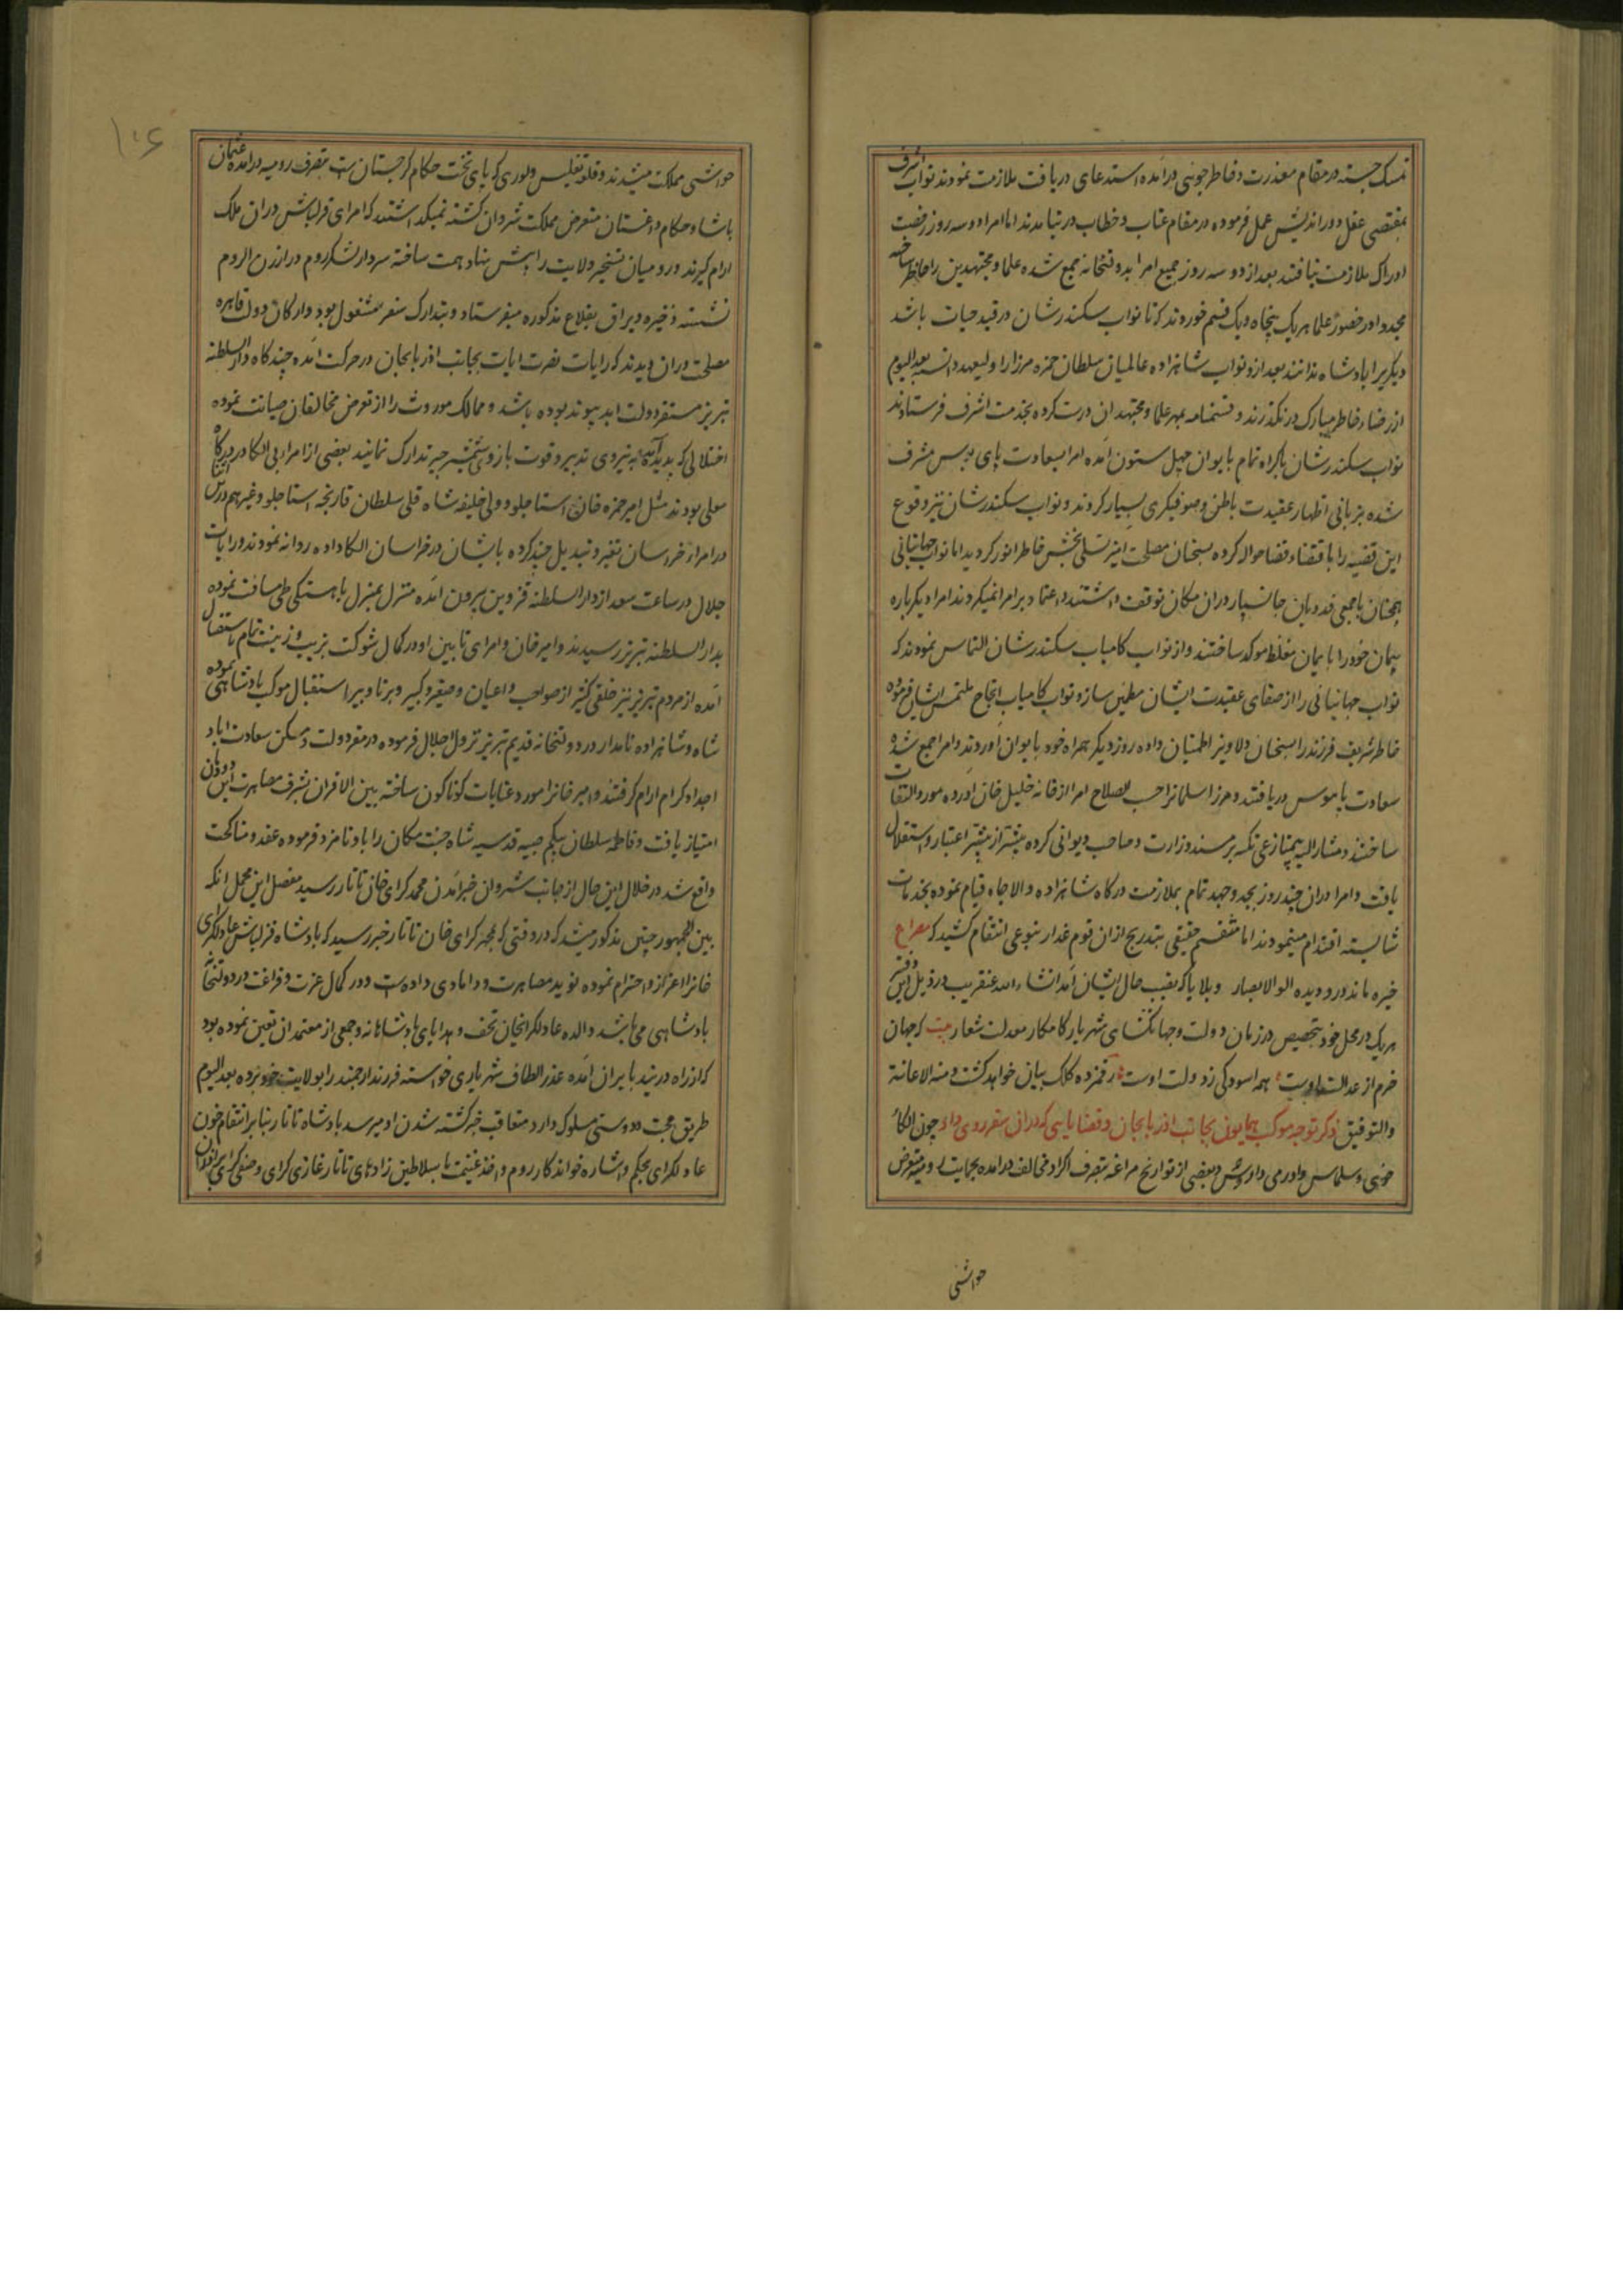 تمسک جسته در مقام معذرت و خاطر جویی درآمده استدعای دریافت ملازمت نمودند نواب اشرف
بمقتضی عقل دوراندیش عمل فرموده در مقام عتاب و خطاب در نیامدند اما امرا دو سه روز رخصت
ادراک ملازمت نیافتند بعد از دو سه روز جمیع امرا بدولتخانه جمع شده علما و مجتهدین را حاضر ساخته
مجددا در حضور علما هر یک پنجاه و یک قسم خوردند که تا نواب سکندر شان در قید حیات باشد
دیگریرا پادشاه ندانند بعد ازو نواب شاهزاده عالمیان سلطان حمزه میرزا را ولیعهد دانسته بعد الیوم
از رضاء خاطر مبارک در نگذرند و قسمنامه بمهر علما و مجتهدان درست کرده بخدمت اشرف فرستادند
نواب سکندر شان باکراه تمام بایوان چهل ستون آمده امرا بسعادت پای بوس مشرف
شده بزبانی اظهار عقیدت باطن و صوفیگری بسیار کردند و نواب سکندر شان نیز وقوع
این قضیه را باقتضاء قضا حواله کرده بسخنان مصلحت آمیز تسلی بخش خاطر انور گردید اما نواب جهانبانی
همچنان با جمعی فدویان جانسپار در ان مکان توقف داشتند و اعتماد بر امرا نمیکردند امرا دیگر باره
پیمان خود را بایمان مغلظ موکد ساختند و از نواب کامیاب سکندر شان التماس نمودند که
نواب جهانبانی را از صفای عقیدت ایشان مطمئن سازد و نواب کامیاب انجاح ملتمس ایشان فرموده
خاطر شریف فرزند را بسخنان دلاویز اطمینان داده روز دیگر همراه خود بایوان آوردند و امرا جمع شده
سعادت پابوس دریافتند و میرزا سلمانرا حسب الصلاح امرا از خانه خلیل خان آورده مورد التفات
ساختند و مشار الیه بی ممتازعی تکیه بر مسند وزارت و صاحب دیوانی کرده بیشتر از پیشتر اعتبار و استقلال
یافت و امرا در ان چند روز بجد و جهد تمام بملازمت درگاه شاهزاده والاجاه قیام نموده بخدمات
شایسته اقدام مینمودند اما منتقم حقیقی بتدریج ازان قوم غدار بنوعی انتقام کشید که مصراع
خیره ماند درو دیده اولو الابصار و بلایا که بعقب حال ایشان آمد انشاء الله عنقریب در ذیل این دفتر
هر یک در محل خود بتخصیص در زمان دولت و جهانگشای شهریار کامکار معدلت شعار بیت که جهان
خرم از عدالت اوست همه آسودگی ز دولت اوست رقمزده کلک بیان خواهد گشت و منه الاعانة
والتوفیق ذکر توجه موکب همایون بجانب آذربایجان و قضایایی که در ان سفر روی داد چون الکاء
خوی و سلماس و اورمی و بعضی از توابع مراغه بتصرف اکراد مخالف درآمده بحمایت رومیه متعرض
حواشی
۱۰۶
حواشی مملکت میشدند و قلعه تفلیس و لوری که پای تخت حکام گرجستان است بتصرف رومیه درآمده عثمان
پاشا و حکام داغستان متعرض مملکت شروان گشته نمیگذاشتند که امرای قزلباش در ان ملک
آرام گیرند و رومیان تسخیر ولایت را پیش نهاد همت ساخته سردار لشکر روم در ارزن الروم
نشسته ذخیره و یراق بقلاع مذکوره میفرستاد و بتدارک سفر مشغول بود و ارکان دولت قاهره
مصلحت در ان دیدند که رایات نصرت آیات بجانب آذربایجان در حرکت آمده چند گاه دار السلطنه
تبریز مستقر دولت ابد پیوند بوده باشد و ممالک موروث را از تعرض مخالفان صیانت نموده
اختلالی که پدید آمده به نیروی تدبیر و قوت بازو و شمشیر تدارک نمایند بعضی از امرا بی الکا در درگاه
معلی بودند مثل امیر حمزه خان استاجلو و ولی خلیفه شاه قلی سلطان قارنجه استاجلو و غیرهم درین اثنا
در امراء خراسان تغیر و تبدیل چند کرده بایشان در خراسان الکا داده روانه نمودند و رایات
جلال در ساعت سعد از دار السلطنه قزوین بیرون آمده منزل بمنزل باهستگی طی مسافت نموده
بدار السلطنه تبریز رسیدند و امیر خان و امرای تابین او در کمال شوکت بزیب و زینت تمام باستقبال
آمده از مردم تبریز نیز خلقی کثیر از صواحب و اعیان و صغیر و کبیر و برنا و پیر استقبال موکب پادشاهی نموده
شاه و شاهزاده نامدار در دولتخانه قدیم تبریز نزول اجلال فرموده در مقر دولت و مسکن سعادت آباد
اجداد کرام آرام گرفتند و امیر خانرا مورد عنایات گوناگون ساخته بین الاقران بشرف مصاهرت این دودمان
امتیاز یافت و فاطمه سلطان بیگم صبیه قدسیه شاه جنت مکان را باو نامزد فرموده عقد و مناکحت
واقع شد در خلال این حال از جانب شروان خبر آمدن محمد گرای خان تاتار رسید مفصل این مجمل آنکه
بین الجمهور چنین مذکور میشد که در وقتی که بمحمد گرای خان تاتار خبر رسید که پادشاه قزلباش عادلگرای
خانرا اعزاز و احترام نموده نوید مصاهرت و دامادی داده است و در کمال عزت و فراغت در دولتخانه
پادشاهی می باشد والده عادلگرایخان تحف و هدایای پادشاهانه و جمعی از معتمدان تعین نموده بود
که از راه دربند بایران آمده عذر الطاف شهریاری خواسته فرزند ارجمند را بولایت خود برده بعد الیوم
طریق محبت و دوستی مسلوک دارد متعاقب خبر کشته شدن او میرسد پادشاه تاتار بنا بر انتقام خون
عادلگرای بحکم و اشاره خواندگار روم و اخذ غنیمت با سلاطین زادهای تاتار غازی گرای و صفی گرای برادران